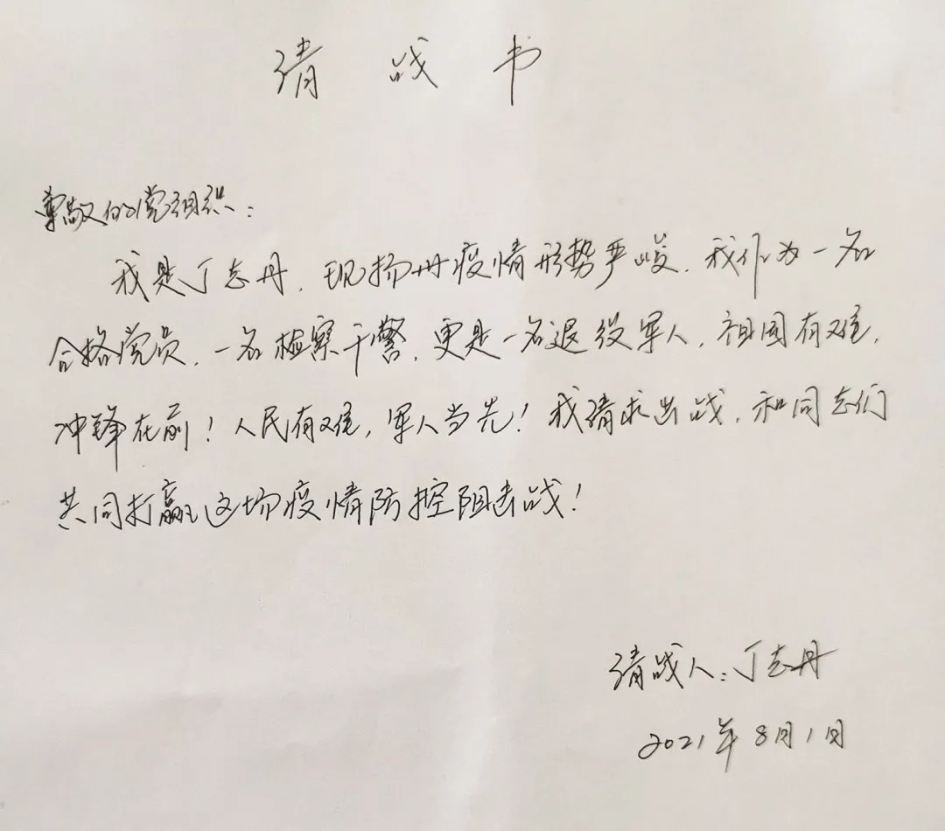 请战书
尊敬的党组织：
我是丁志丹，现扬州疫情形势严峻，我作为一名
合格党员，一名检察干警，更是一名退役军人，祖国有难，
冲锋在前！人民有难，军人当先！我请求出战，和同志们
共同打赢这场疫情防控阻击战！
请战人：丁志丹
2021年8月1日